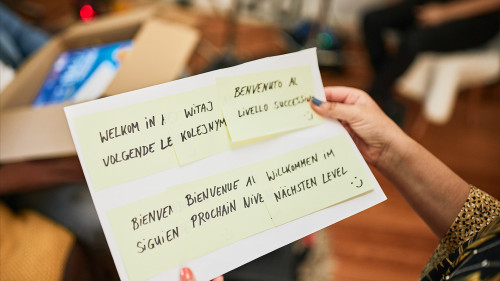 WELKOM IN
VOLGENDE LE
WITAJ
KOLEJNYM
BENVENUTO AL
LIVELLO SUCCESSIV
BIENVE
SIGUIEN
BIENVENUE A
PROCHAIN NIVE
WILLKOMMEN IM
NÄCHSTEN LEVEL
:)